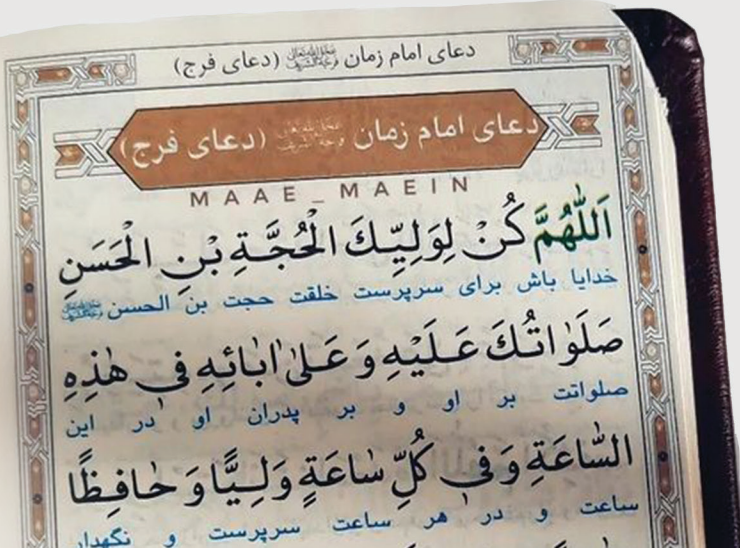 دعای امام زمان عجل الله تعالی فرجه الشریف (دعای فرج)
دعای امام زمان عجل الله تعالی فرجه الشریف (دعای فرج)
MAAE_MAEIN
اَللّٰهُمَّ كُنْ لِوَلِيِّكَ الْحُجَّةِ بْنِ الْحَسَنِ
خدایا باش برای سرپرست خلقت حجت بن الحسن
صَلَوٰاتُكَ عَلَيْهِ وَ عَلىٰ اٰبٰائِهِ في هٰذِهِ
صلواتت بر او و بر پدران او در این
السّٰاعَةِ وَ في كُلِّ سٰاعَةٍ وَلِيًّا وَ حٰافِظًا
ساعت و در هر ساعت سرپرست و نگهدار